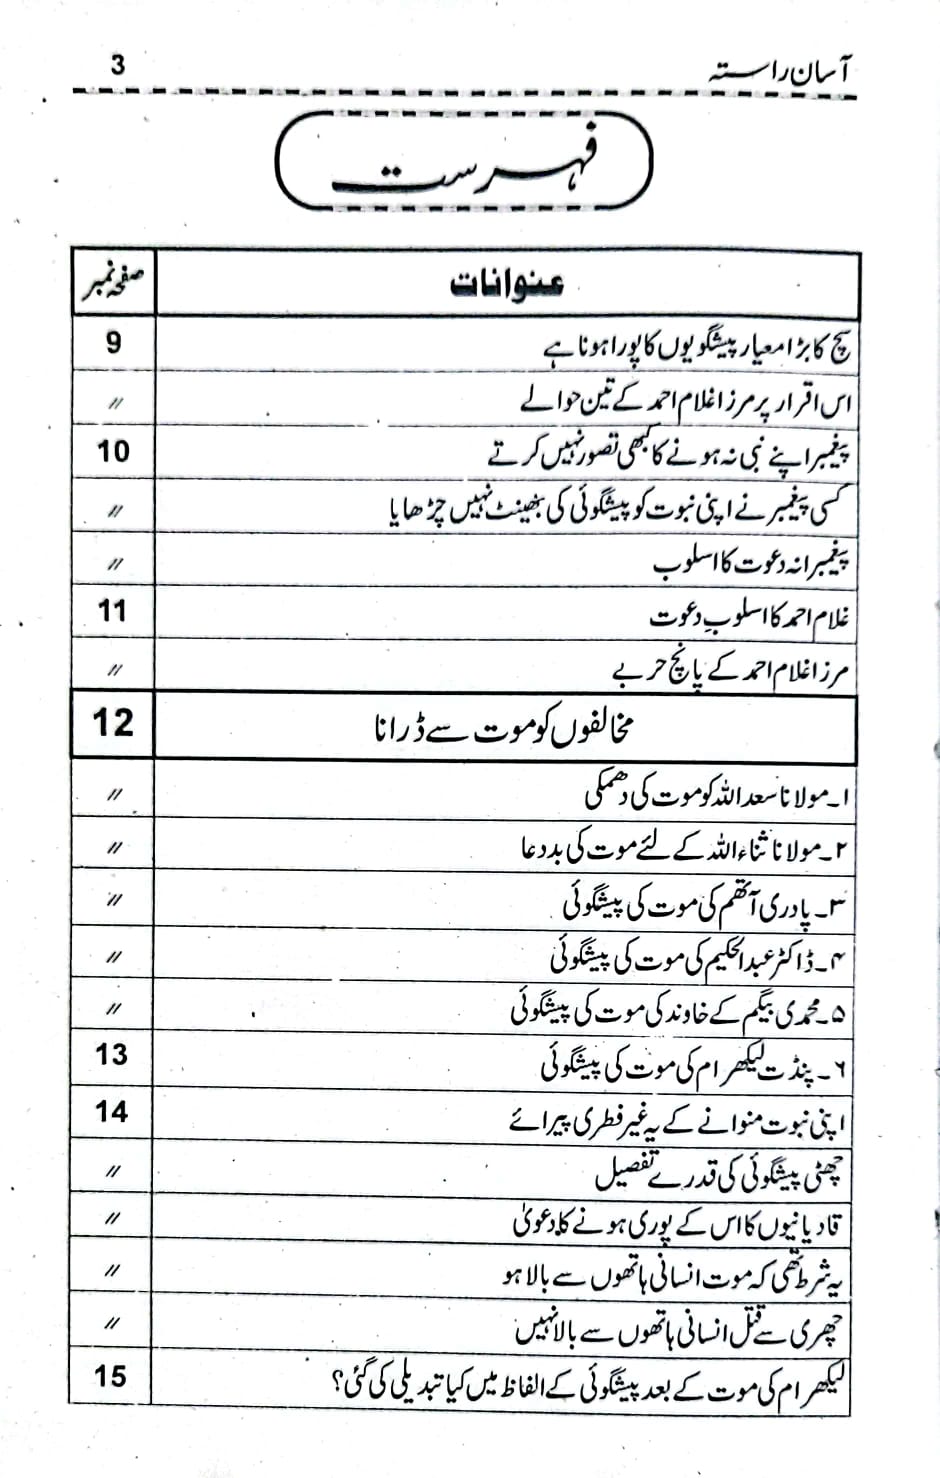 آسان راستہ 3
فہرست
عنوانات صفحہ نمبر
سچ کا بڑا معیار پیشگویوں کا پورا ہونا ہے 9
اس اقرار پر مرزا غلام احمد کے تین حوالے //
پیغمبر اپنے نبی نہ ہونے کا کبھی تصور نہیں کرتے 10
کسی پیغمبر نے اپنی نبوت کو پیشگوئی کی بھینٹ نہیں چڑھایا //
پیغمبرانہ دعوت کا اسلوب //
غلام احمد کا اسلوبِ دعوت 11
مرزا غلام احمد کے پانچ حربے //
مخالفوں کو موت سے ڈرانا 12
۱۔ مولانا سعد اللہ کو موت کی دھمکی //
۲۔ مولانا ثناء اللہ کے لئے موت کی بددعا //
۳۔ پادری آتھم کی موت کی پیشگوئی //
۴۔ ڈاکٹر عبدالحکیم کی موت کی پیشگوئی //
۵۔ محمدی بیگم کے خاوند کی موت کی پیشگوئی //
۶۔ پنڈت لیکھرام کی موت کی پیشگوئی 13
اپنی نبوت منوانے کے یہ غیر فطری پیرائے 14
چھٹی پیشگوئی کی قدرے تفصیل //
قادیانیوں کا اس کے پوری ہونے کا دعویٰ //
یہ شرط تھی کہ موت انسانی ہاتھوں سے بالا ہو //
چھری سے قتل انسانی ہاتھوں سے بالا نہیں //
لیکھرام کی موت کے بعد پیشگوئی کے الفاظ میں کیا تبدیلی کی گئی؟ 15